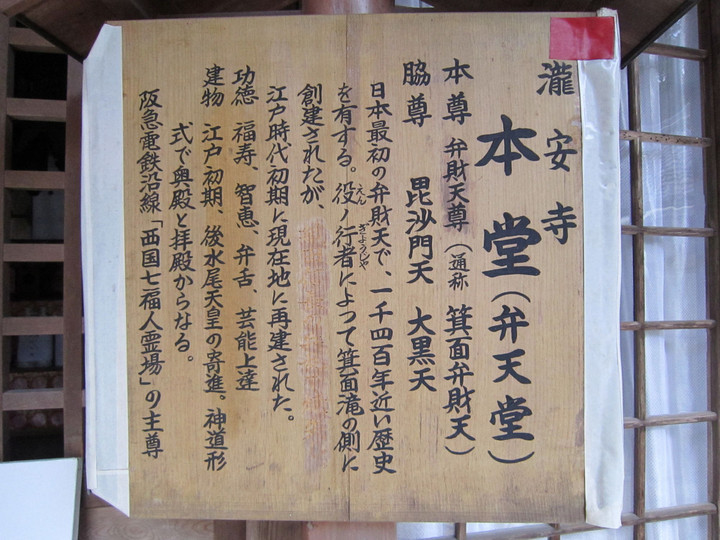 瀧安寺
本堂（弁天堂）
本尊 弁財天尊（通称 箕面弁財天）
脇尊 毘沙門天 大黒天
日本最初の弁財天で、一千四百年近い歴史
を有する。役ノ行者によって箕面滝の側に
えん ぎようじや
創建されたが、
江戸時代初期に現在地に再建された。
功徳 福寿、智恵、弁舌、芸能上達
建物 江戸初期、後水尾天皇の寄進。神道形
式で奥殿と拝殿からなる。
阪急電鉄沿線「西国七福人霊場」の主尊